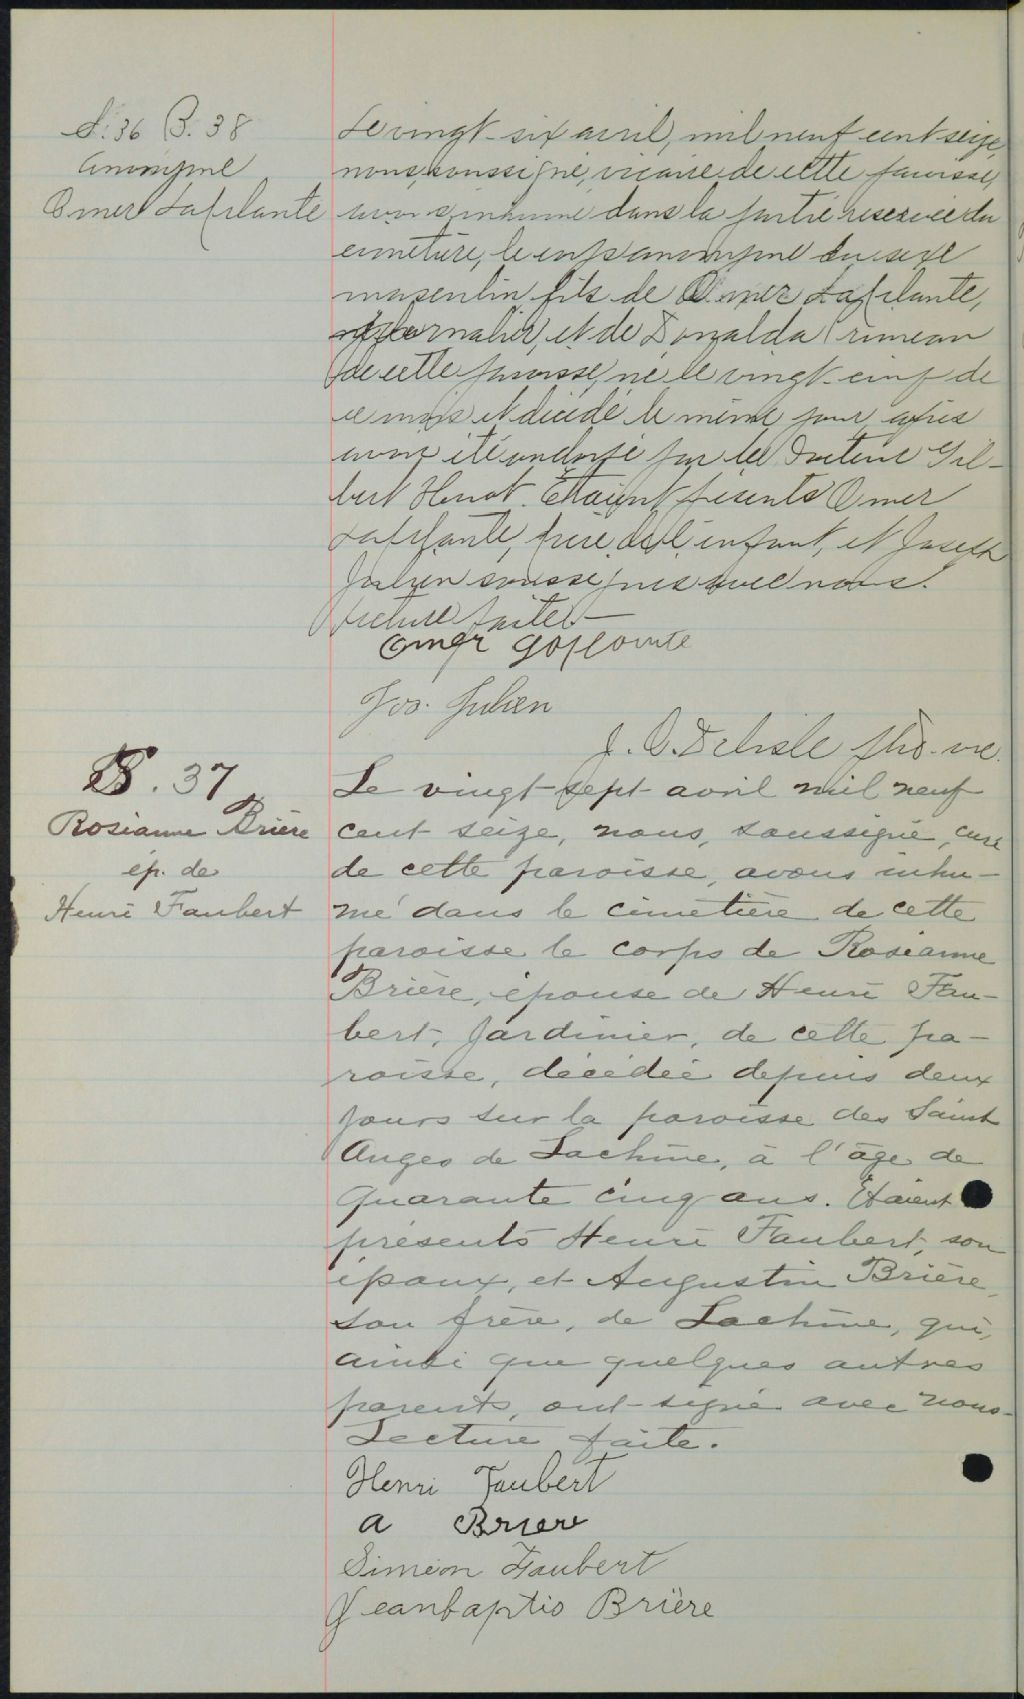 S. 36 B. 38
Anonyme
Omer Laplante
Le vingt-six avril, mil neuf cent seize,
nous, soussigné, vicaire de cette paroisse,
avons inhumé dans la partie reservée du
cimetière, le corps anonyme du sexe
masculin fils de Omer Laplante,
journalier, et de Donalda Primeau
de cette paroisse, né le vingt-cinq de
ce mois et décédé le même jour, après
avoir été ondoyé par le Docteur Gil-
bert Huot. Étaient présents Omer
Laplante, père de l'enfant, et Joseph
Julien soussignés avec nous.
Lecture faite.-
Omer
Jos. Julien
J. O. Delisle ptre. vic.
S. 37
Rosianne Brière
ép. de
Henri Faubert
Le vingt-sept avril mil neuf
cent seize, nous, soussigné, curé
de cette paroisse, avons inhu-
mé dans le cimetière de cette
paroisse le corps de Rosianne
Brière, épouse de Henri Fau-
bert, jardinier, de cette pa-
roisse, décédée depuis deux
jours sur la paroisse des Saint
Anges de Lachine, à l'âge de
quarante cinq ans. Étaient
présents Henri Faubert, son
époux, et Augustin Brière,
son frère, de Lachine, qui,
ainsi que quelques autres
parents, ont signé avec nous-
Lecture faite.
Henri Faubert
A Briere
Simeon Faubert
Jeanbaptis Brière